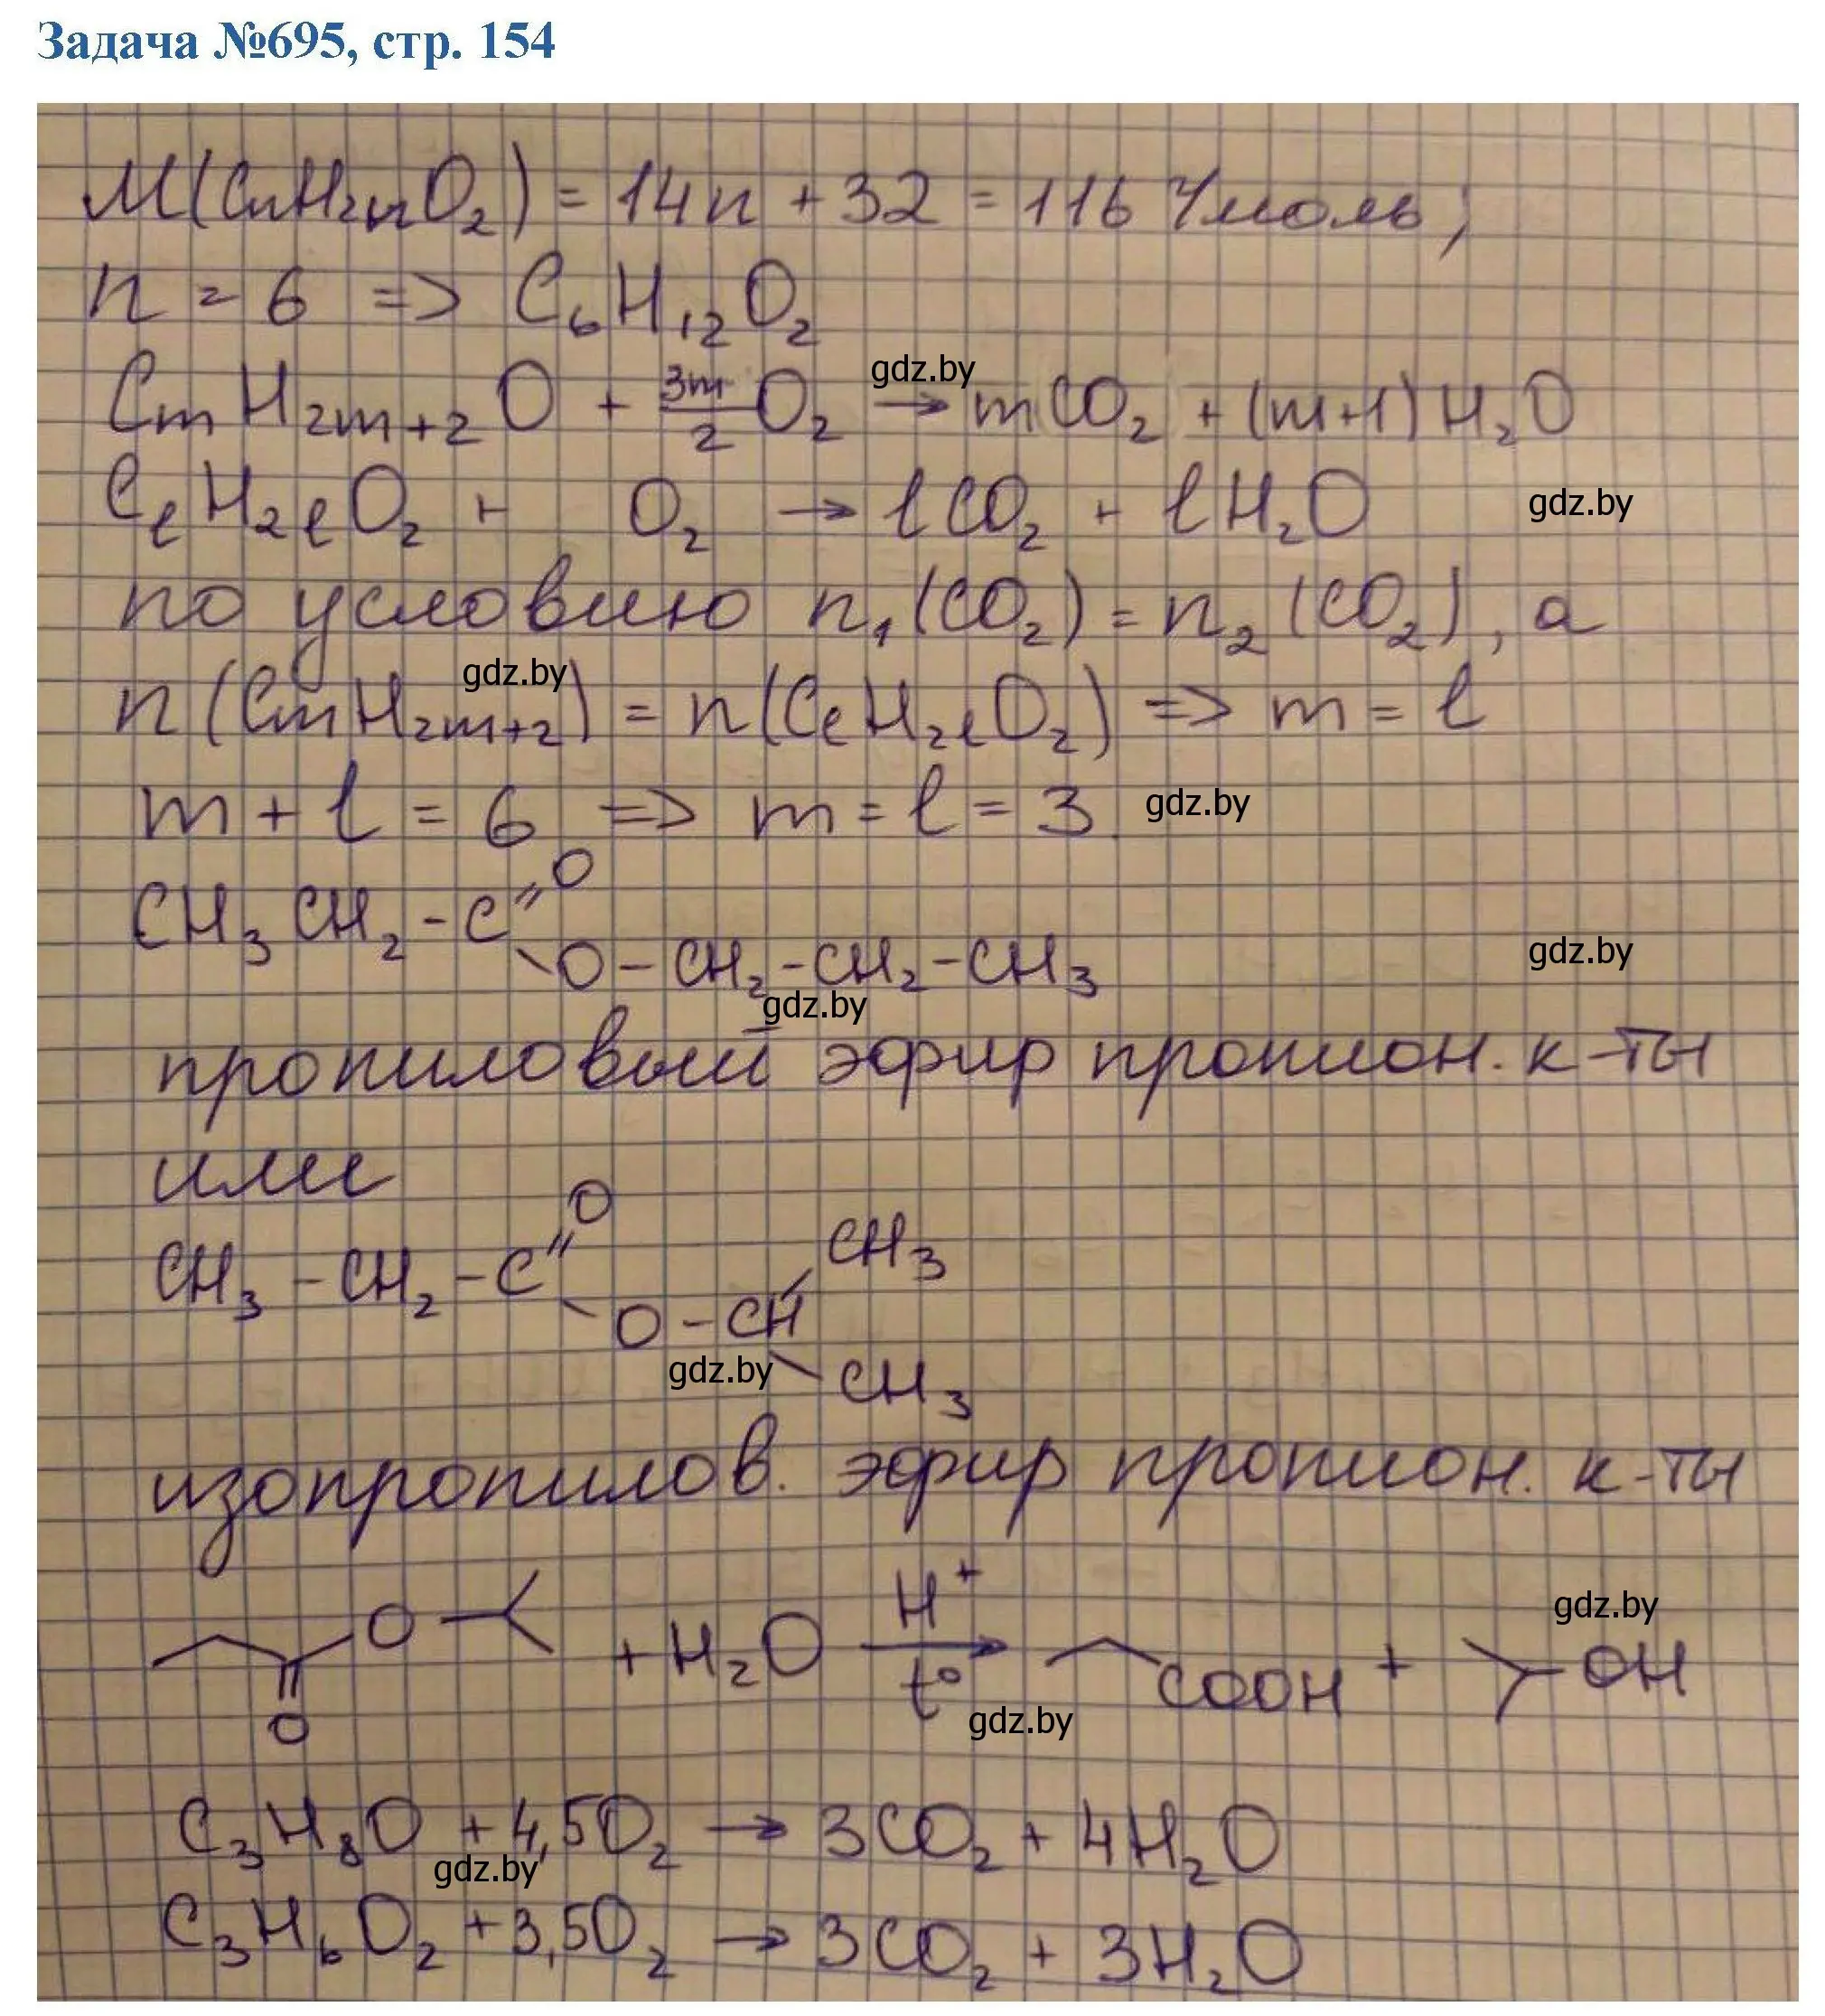 Задача №695, стр. 154
M(CnH2nO2) = 14n + 32 = 116 г/моль;
n = 6 => C6H12O2
CmH2m+2O + 3m/2 O2 → mCO2 + (m+1)H2O
gdz.by
CℓH2ℓO2 + O2 → ℓCO2 + ℓH2O
gdz.by
по условию n1(CO2) = n2(CO2), а
n(CmH2m+2) = n(CℓH2ℓO2) => m = ℓ
gdz.by
m + ℓ = 6 => m = ℓ = 3
gdz.by
CH3CH2-C=O
-O-CH2-CH2-CH3
gdz.by
gdz.by
пропиловый эфир пропион. к-ты
или
CH3-CH2-C=O
-O-CH
CH3
CH3
gdz.by
изопропилов. эфир пропион. к-ты
O
O
+ H2O H+ t° → COOH + OH
gdz.by
gdz.by
C3H8O + 4,5O2 → 3CO2 + 4H2O
gdz.by
C3H6O2 + 3,5O2 → 3CO2 + 3H2O